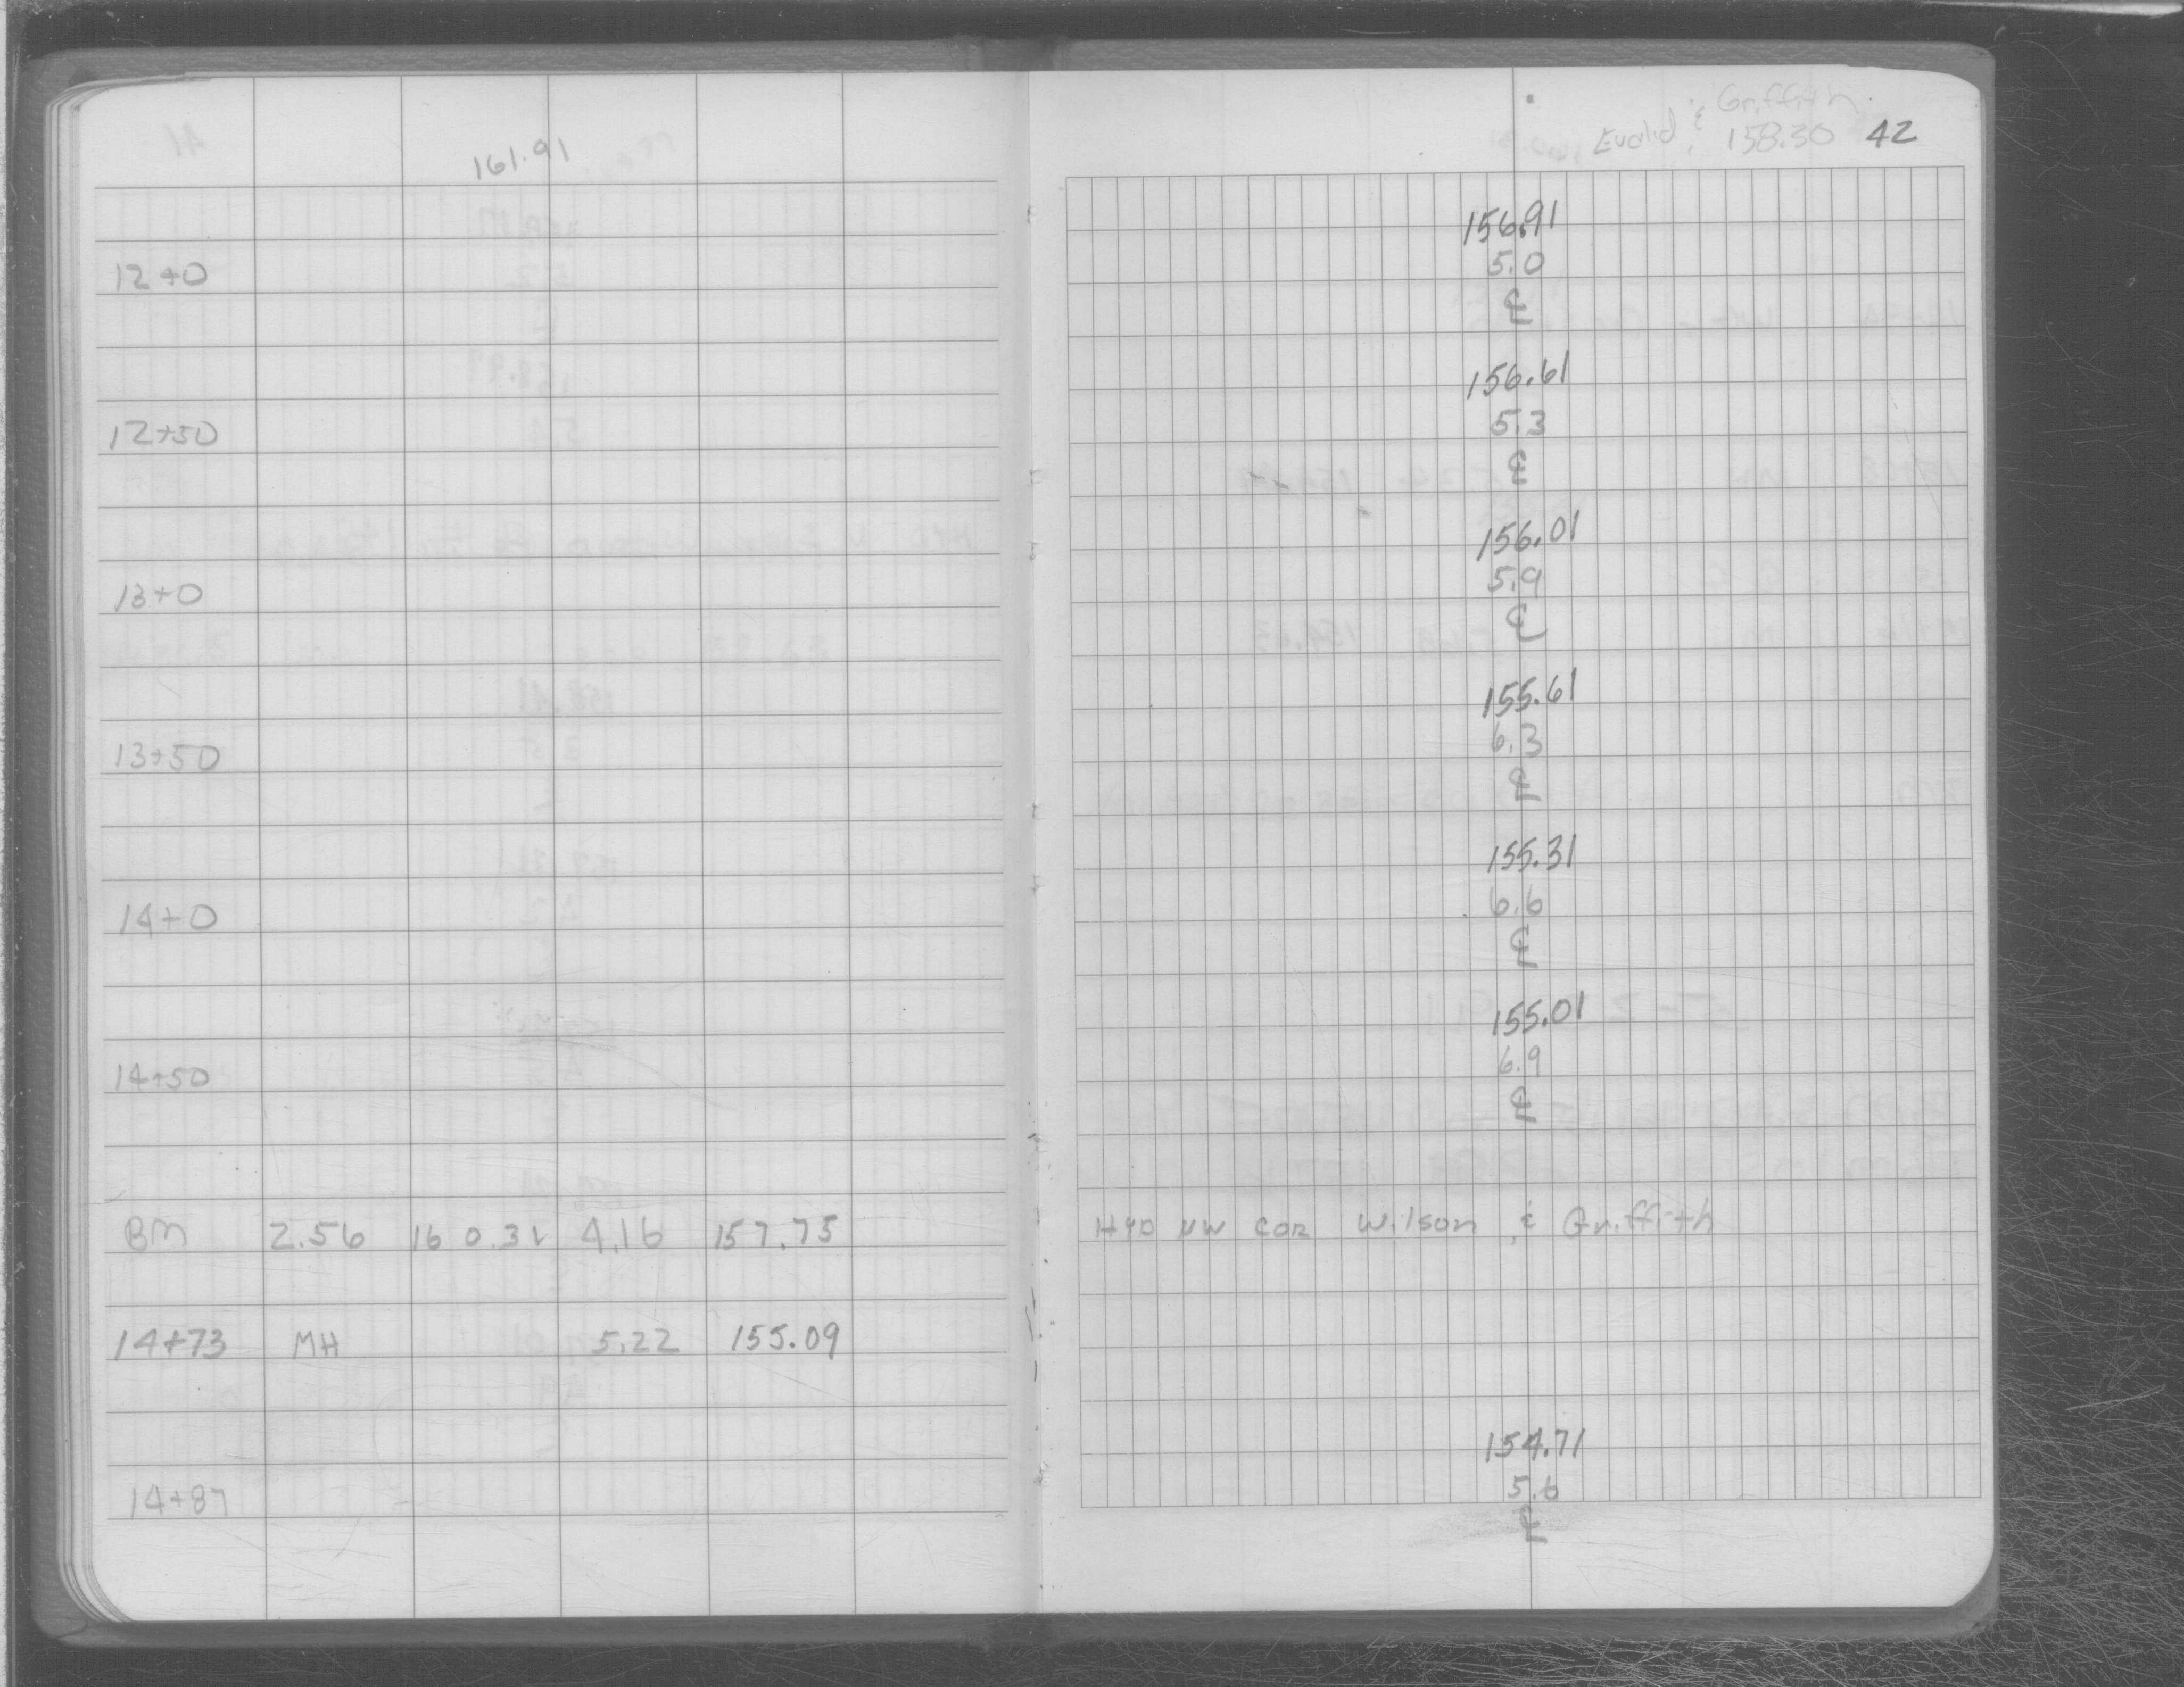 161.91
Griffith
Euclid & 158.30 42
156.91
12+0 5.0
℄
156.61
12+50 5.3
℄
156.01
13+0 5.9
℄
155.61
13+50 6.3
℄
155.31
14+0 6.6
℄
155.01
14+50 6.9
℄
BM 2.56 160.31 4.16 157.75 HYD NW COR Wilson & Griffith
14+73 MH 5.22 155.09
154.71
14+87 5.6
℄